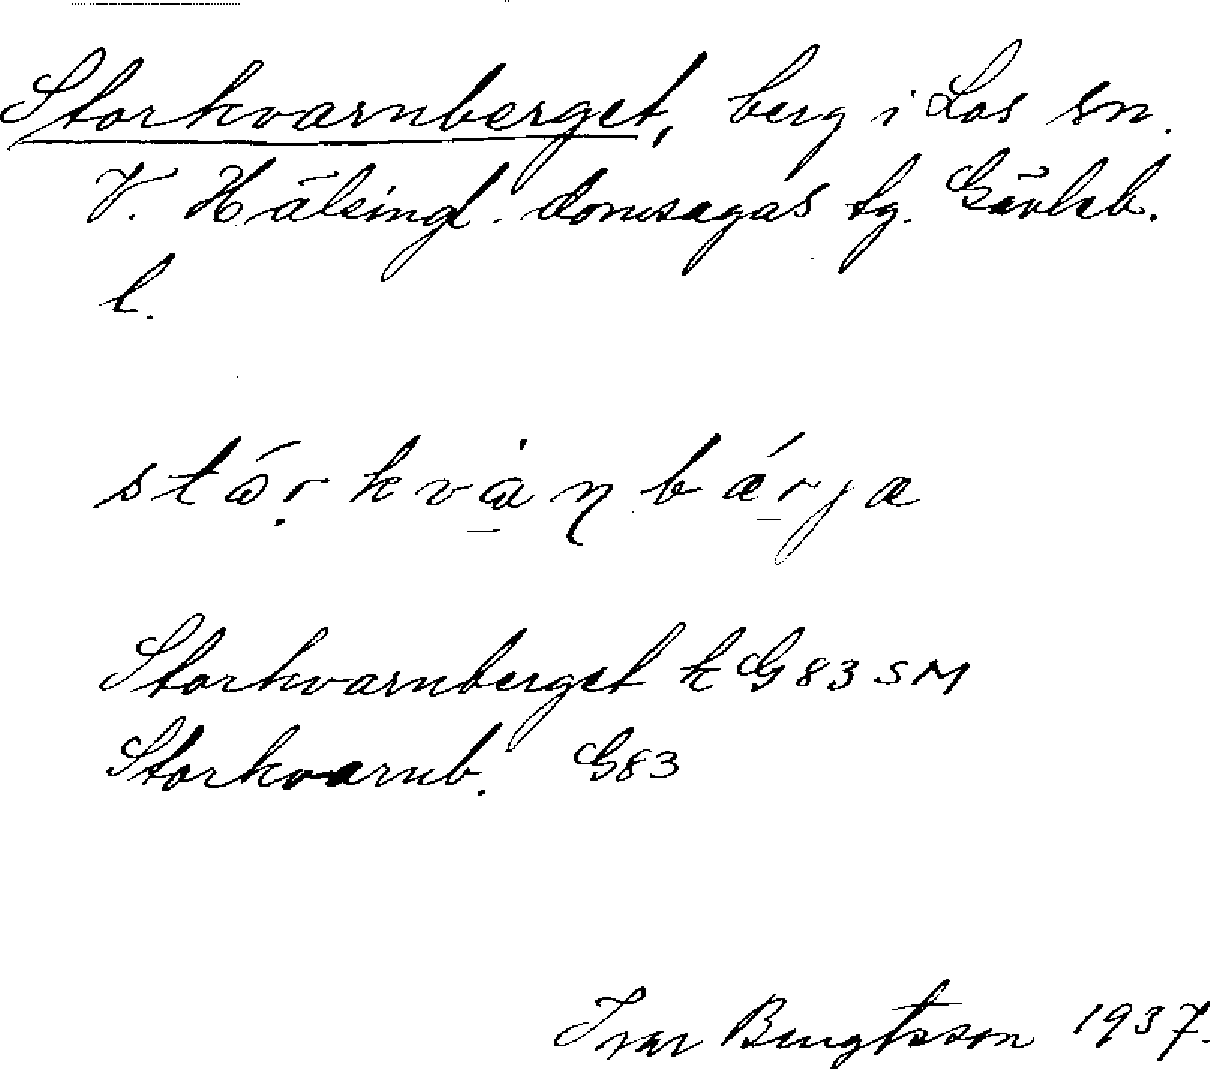 Storkvarnberget, berg i Los sn.
V. Hälsingl. domsagas tg. Gävleb.
l.
Storkvarnberget k G83SM
Storkvarnb. G83
Ivar Bengtsson 1937.